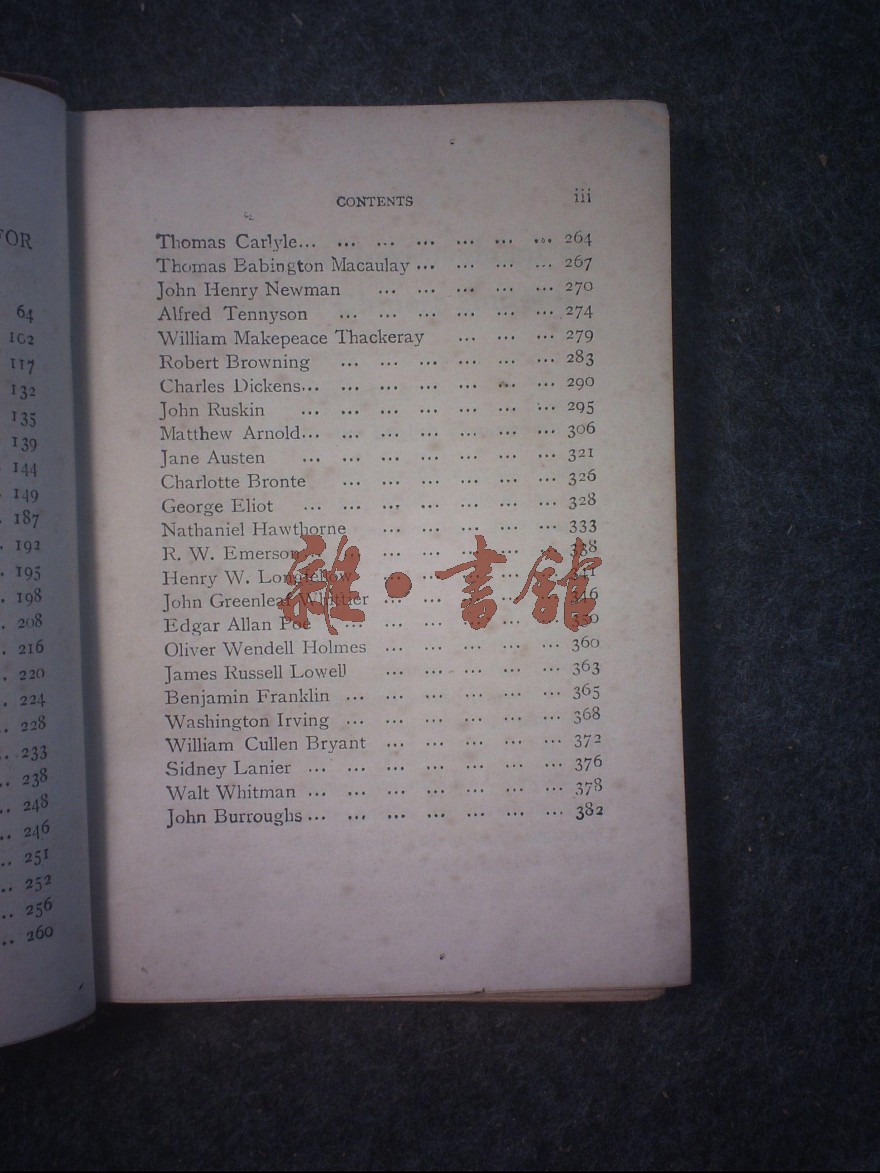 FOR
64
102
117
132
135
139
144
149
. 187
. 192
. 195
. 198
. 208
. 216
. 220
. 224
. 228
.. 233
.. 238
.. 248
.. 246
.. 251
.. 252
.. 256
.. 260
CONTENTS iii
Thomas Carlyle... ... ... ... ... ... ... 264
Thomas Babington Macaulay ... ... ... ... 267
John Henry Newman ... ... ... ... ... 270
Alfred Tennyson ... ... ... ... ... ... 274
William Makepeace Thackeray ... ... ... 279
Robert Browning ... ... ... ... ... ... 283
Charles Dickens... ... ... ... ... ... ... 290
John Ruskin ... ... ... ... ... ... ... 295
Matthew Arnold... ... ... ... ... ... ... 306
Jane Austen ... ... ... ... ... ... ... 321
Charlotte Bronte ... ... ... ... ... ... 326
George Eliot ... ... ... ... ... ... ... 328
Nathaniel Hawthorne ... ... ... ... ... 333
R. W. Emerson ... ... ... ... ... ... 338
Henry W. Longfellow ... ... ... ... ... 341
John Greenleaf Whittier ... ... ... ... ... 346
Edgar Allan Poe ... ... ... ... ... ... 350
Oliver Wendell Holmes ... ... ... ... ... 360
James Russell Lowell ... ... ... ... ... 363
Benjamin Franklin ... ... ... ... ... ... 365
Washington Irving ... ... ... ... ... ... 368
William Cullen Bryant ... ... ... ... ... 372
Sidney Lanier ... ... ... ... ... ... ... 376
Walt Whitman ... ... ... ... ... ... ... 378
John Burroughs ... ... ... ... ... ... ... 382
雜·書館